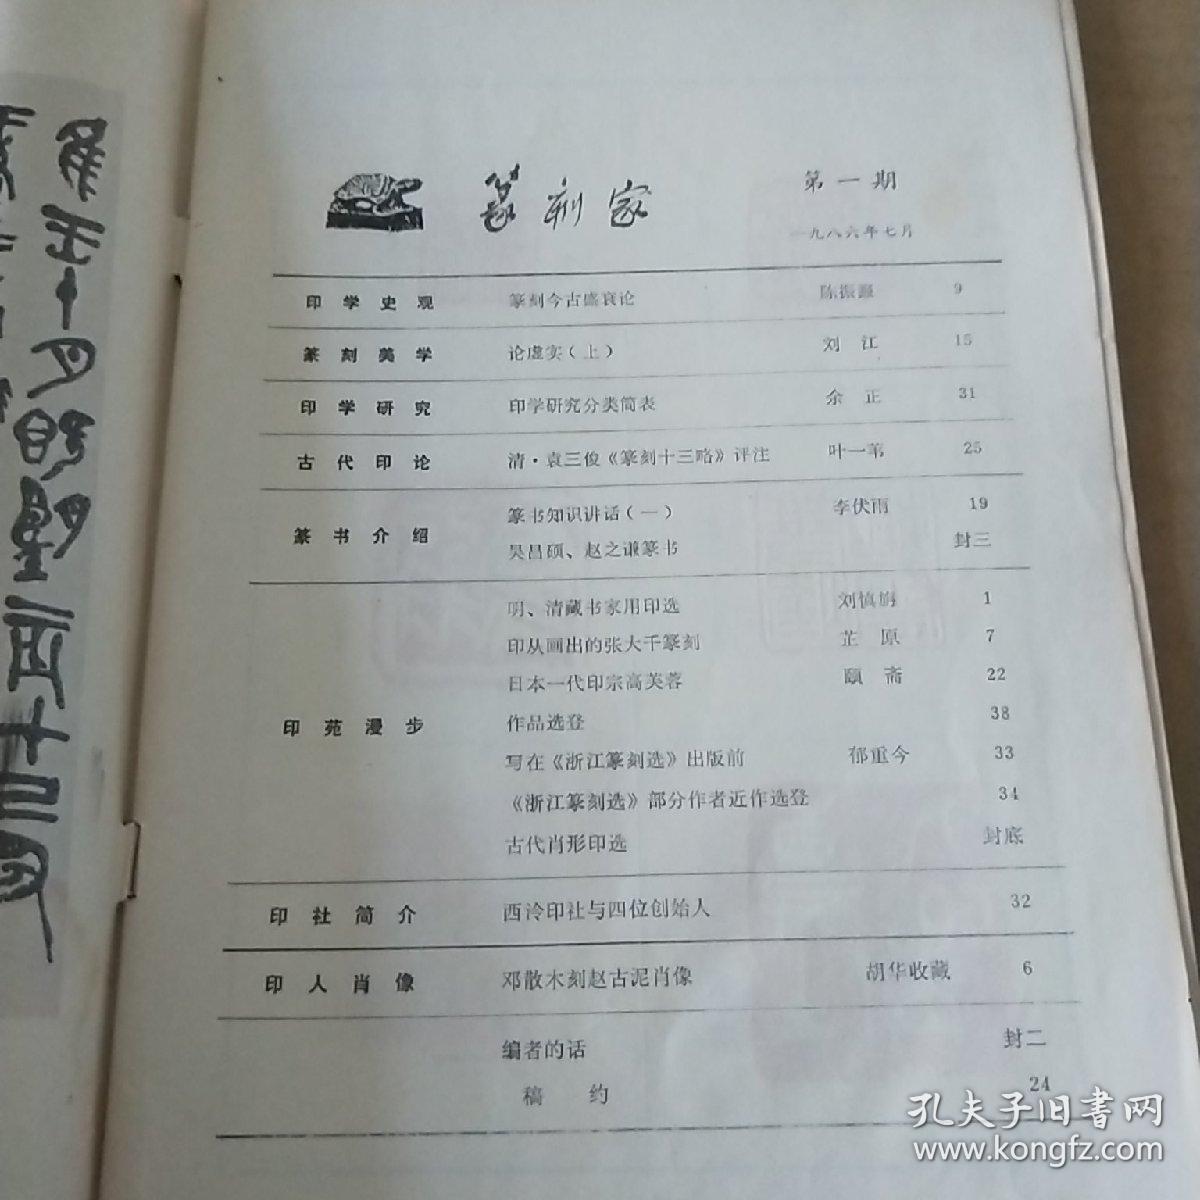 篆刻家
第一期
一九八六年七月
印学史观 篆刻今古盛衰论 陈振濂 9
篆刻美学 论虚实(上) 刘江 15
印学研究 印学研究分类简表 余正 31
古代印论 清·袁三俊《篆刻十三略》评注 叶一苇 25
篆书介绍 篆书知识讲话(一) 李伏雨 19
吴昌硕、赵之谦篆书 封三
明、清藏书家用印选 刘慎旃 1
印从画出的张大千篆刻 芷原 7
日本一代印宗高芙蓉 颐斋 22
印苑漫步 作品选登 38
写在《浙江篆刻选》出版前 郁重今 33
《浙江篆刻选》部分作者近作选登 34
古代肖形印选 封底
印社简介 西泠印社与四位创始人 32
印人肖像 邓散木刻赵古泥肖像 胡华收藏 6
编者的话 封二
稿约 24
孔夫子旧书网
www.kongfz.com